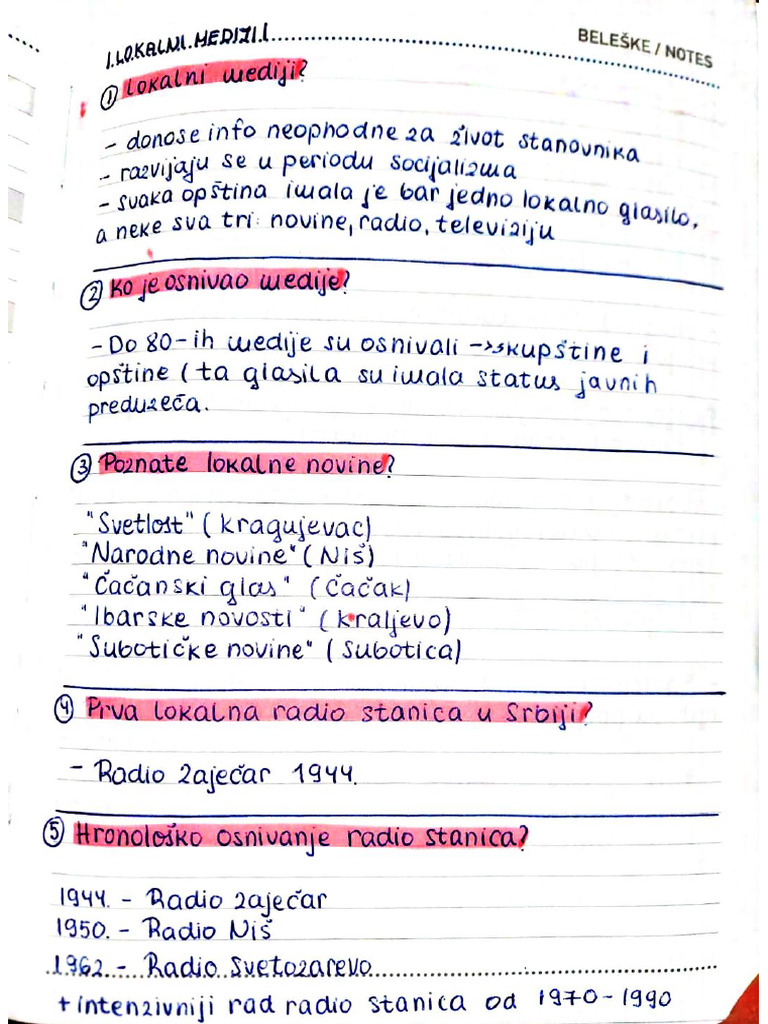 BELEŠKE / NOTES
LOKALNI MEDIJI
① Lokalni mediji?
- donose info neophodne za život stanovnika
- razvijaju se u periodu socijalizma
- svaka opština imala je bar jedno lokalno glasilo,
a neke sva tri: novine, radio, televiziju
② Ko je osnivao medije?
- Do 80-ih medije su osnivali →skupštine i
opštine ( ta glasila su imala status javnih
preduzeća.
③ Poznate lokalne novine?
"Svetlost" ( kragujevac)
"Narodne novine" ( Niš)
"Čačanski glas" ( čačak)
"Ibarske novosti" ( kraljevo)
"Subotičke novine" ( subotica)
④ Prva lokalna radio stanica u Srbiji?
- Radio zaječar 1944.
⑤ Hronološko osnivanje radio stanica?
1944. - Radio zaječar
1950. - Radio Niš
1962. - Radio svetozarevo
+ intenzivniji rad radio stanica od 1970-1990